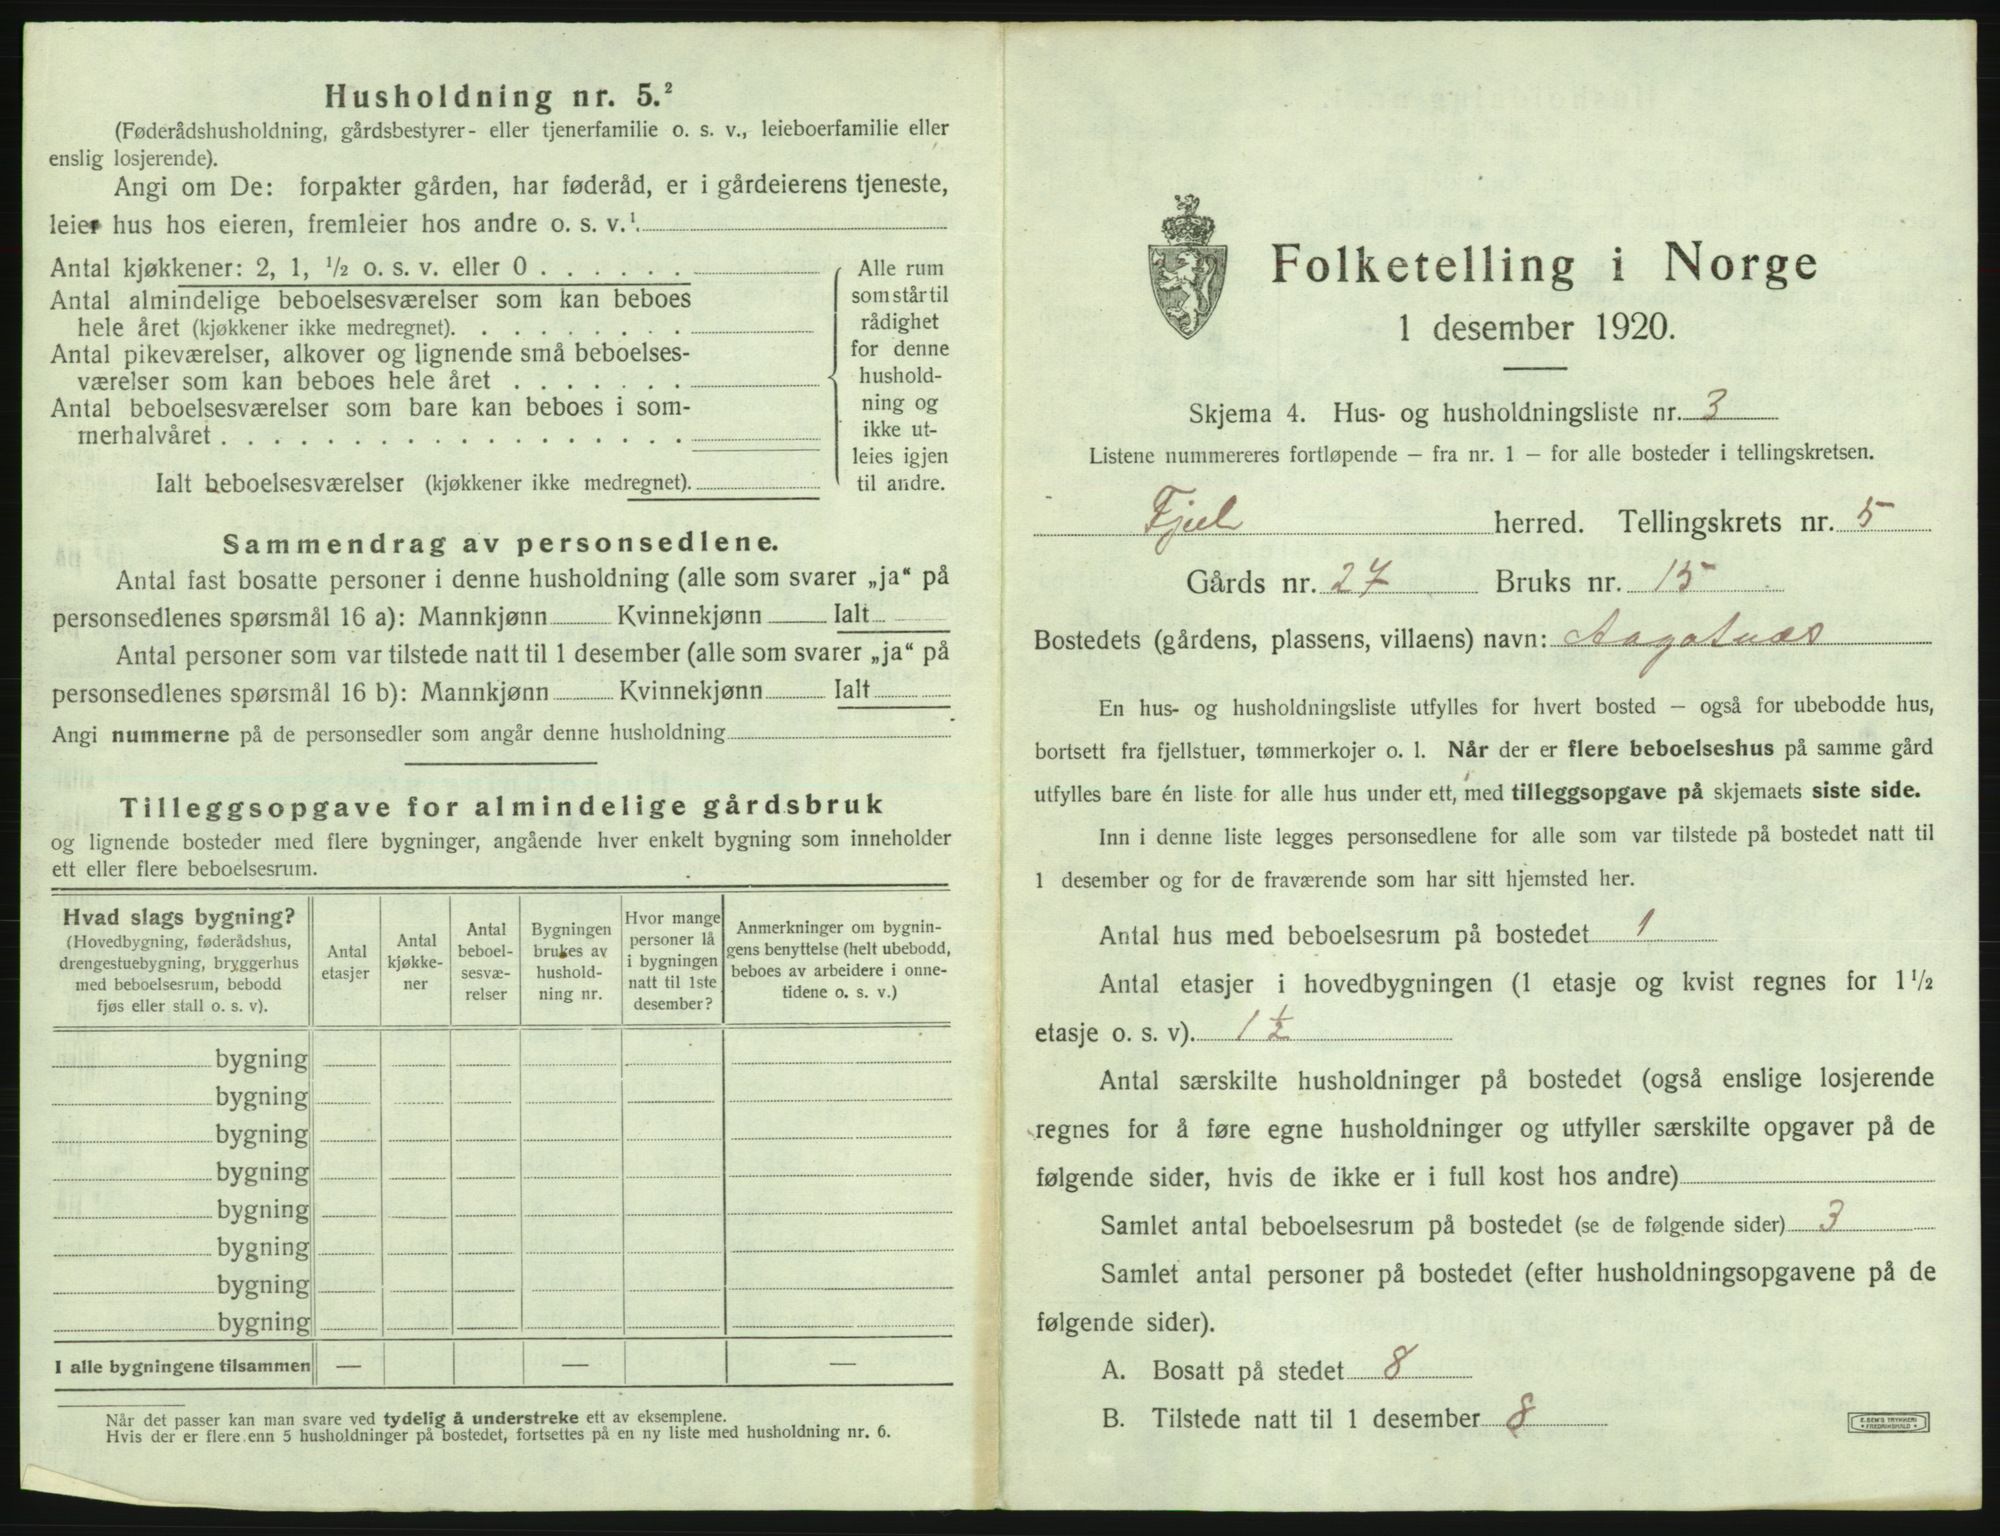 Husholdning nr. 5.²
(Føderådshusholdning, gårdsbestyrer- eller tjenerfamilie o. s. v., leieboerfamilie eller
enslig losjerende).
Angi om De: forpakter gården, har føderåd, er i gårdeierens tjeneste,
leier hus hos eieren, fremleier hos andre o. s. v.¹.
Antal kjøkkener: 2, 1, 1/2 o. s. v. eller 0 . . . . . .
Antal almindelige beboelsesværelser som kan beboes
hele året (kjøkkener ikke medregnet). . . . . . . . .
Antal pikeværelser, alkover og lignende små beboelses-
værelser som kan beboes hele året . . . . . . .
Antal beboelsesværelser som bare kan beboes i som-
merhalvåret . . . . . . . . . . . . . . . . . .
Ialt beboelsesværelser (kjøkkener ikke medregnet).
Alle rum
som står til
rådighet
for denne
hushold-
ning og
ikke ut-
leies igjen
til andre.
Sammendrag av personsedlene.
Antal fast bosatte personer i denne husholdning (alle som svarer „ja“ på
personsedlenes spørsmål 16 a): Mannkjønn Kvinnekjønn Ialt
Antal personer som var tilstede natt til 1 desember (alle som svarer „ja“ på
personsedlenes spørsmål 16 b): Mannkjønn Kvinnekjønn Ialt
Angi nummerne på de personsedler som angår denne husholdning
Tilleggsopgave for almindelige gårdsbruk
og lignende bosteder med flere bygninger, angående hver enkelt bygning som inneholder
ett eller flere beboelsesrum.
Hvad slags bygning?
(Hovedbygning, føderådshus,
drengestuebygning, bryggerhus
med beboelsesrum, bebodd
fjøs eller stall o. s. v).
Antal
etasjer
Antal
kjøkke-
ner
Antal
beboel-
sesvæ-
relser
Bygningen
brukes av
hushold-
ning nr.
Hvor mange
personer lå
i bygningen
natt til 1ste
desember?
Anmerkninger om bygnin-
gens benyttelse (helt ubebodd,
beboes av arbeidere i onne-
tidene o. s. v.)
bygning
bygning
bygning
bygning
bygning
bygning
bygning
bygning
I alle bygningene tilsammen — — —
Når det passer kan man svare ved tydelig å understreke ett av eksemplene.
Hvis der er flere enn 5 husholdninger på bostedet, fortsettes på en ny liste med husholdning nr. 6.
Folketelling i Norge
1 desember 1920.
Skjema 4. Hus- og husholdningsliste nr. 3
Listene nummereres fortløpende – fra nr. 1 – for alle bosteder i tellingskretsen.
Fjel herred. Tellingskrets nr. 5
Gårds nr. 27 Bruks nr. 15
Bostedets (gårdens, plassens, villaens) navn: Aagotnæs
En hus- og husholdningsliste utfylles for hvert bosted – også for ubebodde hus,
bortsett fra fjellstuer, tømmerkojer o. l. Når der er flere beboelseshus på samme gård
utfylles bare én liste for alle hus under ett, med tilleggsopgave på skjemaets siste side.
Inn i denne liste legges personsedlene for alle som var tilstede på bostedet natt til
1 desember og for de fraværende som har sitt hjemsted her.
Antal hus med beboelsesrum på bostedet 1
Antal etasjer i hovedbygningen (1 etasje og kvist regnes for 1 1/2
etasje o. s. v). 1 1/2
Antal særskilte husholdninger på bostedet (også enslige losjerende
regnes for å føre egne husholdninger og utfyller særskilte opgaver på de
følgende sider, hvis de ikke er i full kost hos andre)
Samlet antal beboelsesrum på bostedet (se de følgende sider) 3
Samlet antal personer på bostedet (efter husholdningsopgavene på de
følgende sider).
A. Bosatt på stedet 8
B. Tilstede natt til 1 desember 8
E. SEM'S TRYKKERI
• FREDRIKSHALD •